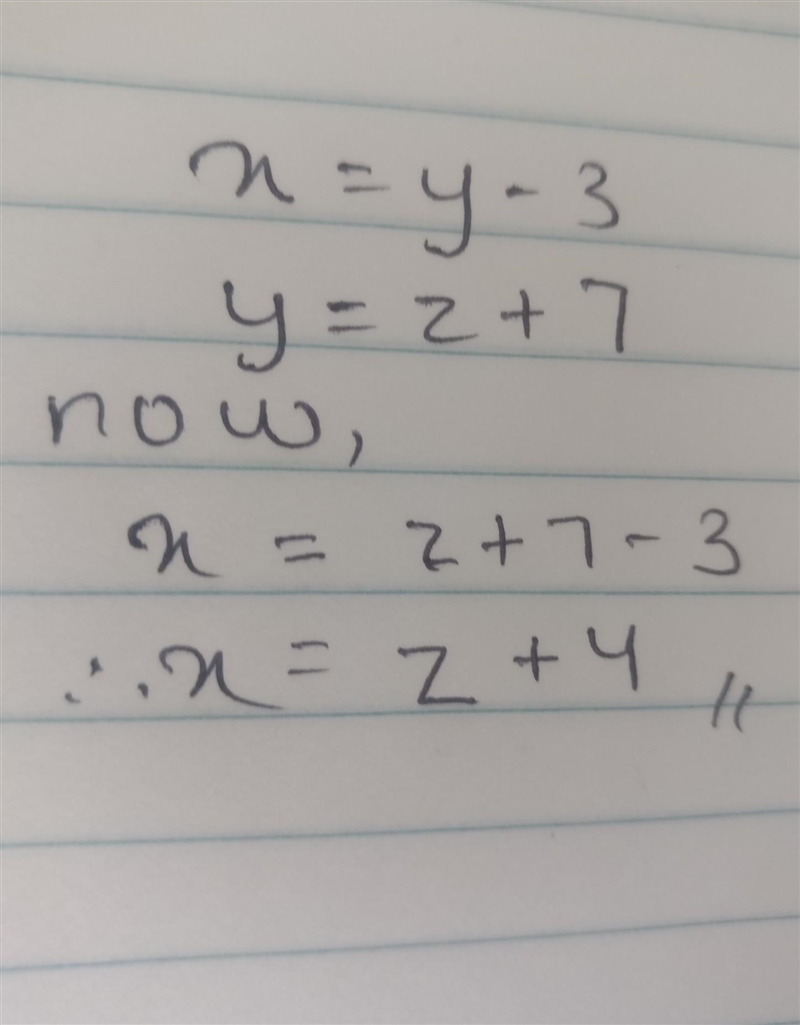 x = y - 3
y = z + 7
now,
x = z + 7 - 3
∴ x = z + 4 //